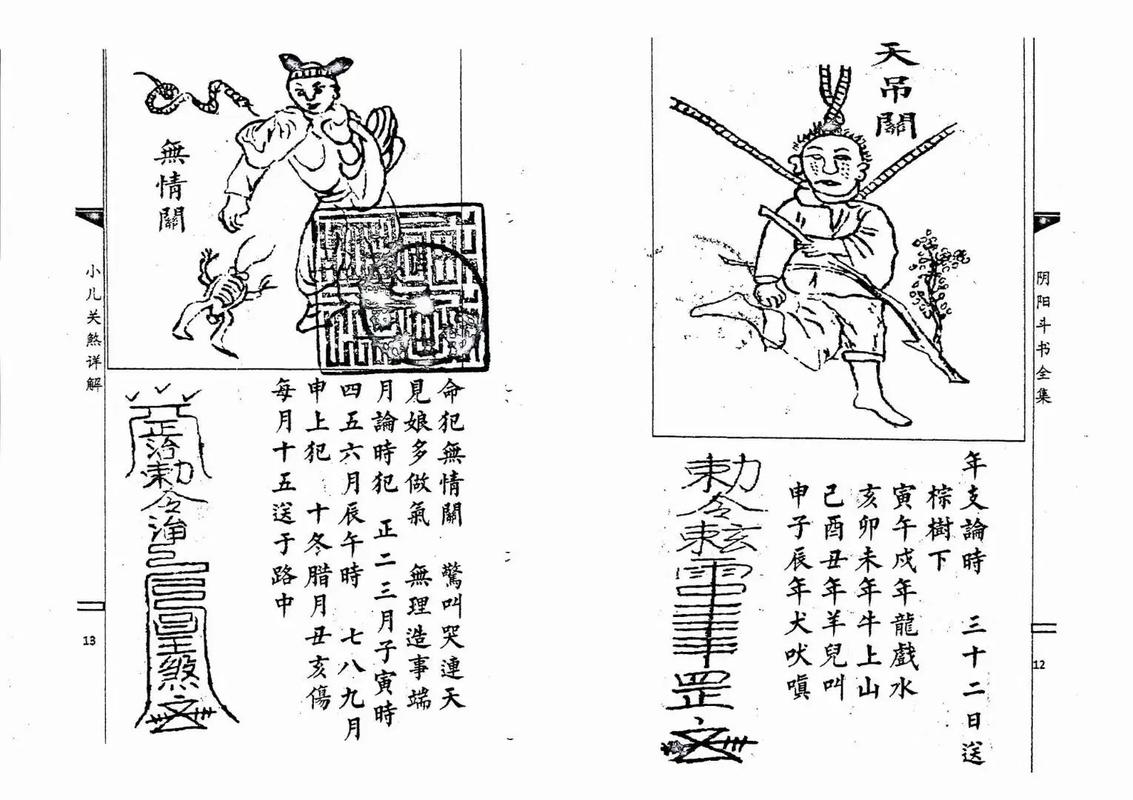 阴阳斗书全集
12
天吊關
年支論時 三十二日送
棕樹下
寅午戌年龍戲水
亥卯未年牛上山
己酉丑年羊兒叫
申子辰年犬吠嗔
勅令
罡
無情關
命犯無情關 驚叫哭連天
見娘多做氣 無理造事端
月論時犯 正二三月子寅時
四五六月辰午時 七八九月
申上犯 十冬腊月丑亥傷
每月十五送于路中
正治勅令
煞
小儿关煞详解
13